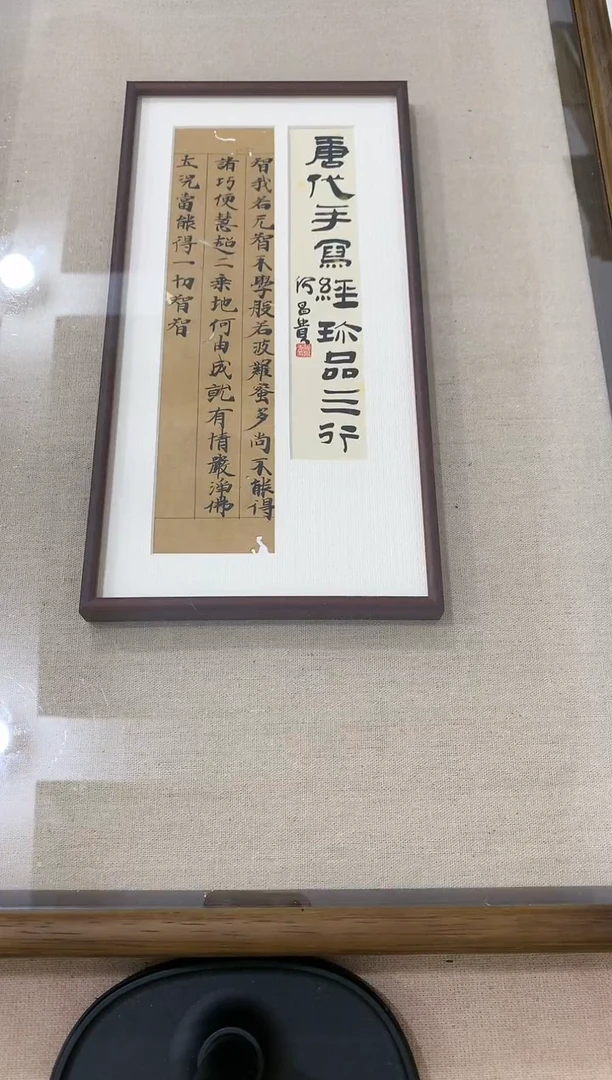 唐代手寫經珍品三行
昌貴
智我若无智不學般若波羅蜜多尚不能得
諸巧便慧超二乘地何由成就有情嚴淨佛
土況當能得一切智智